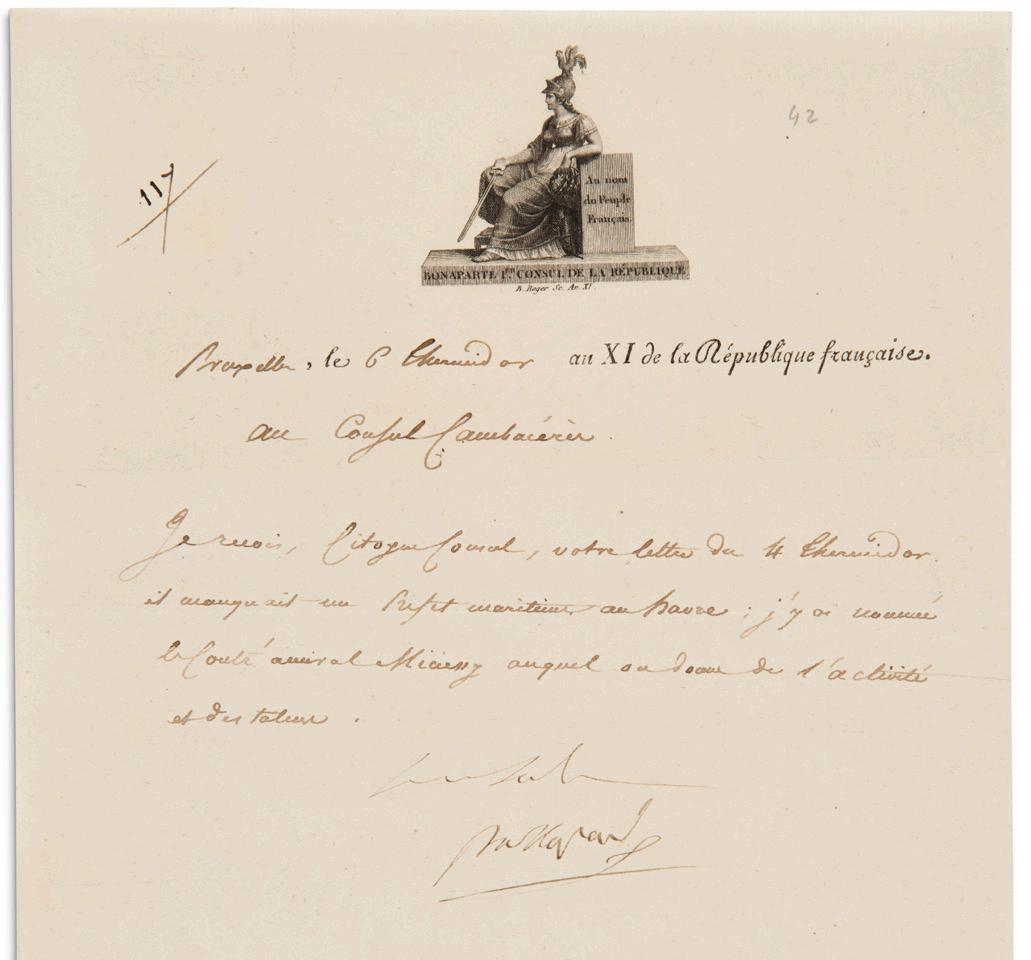 42
117
Au nom
du Peuple
Français.
BONAPARTE 1er. CONSUL DE LA RÉPUBLIQUE
B. Roger Sc. An XI.
Bruxelles, le 6 thermidor an XI de la République française.
au Consul Cambacérès.
Je reçois, Citoyen Consul, votre lettre du 4 thermidor.
il manquait un Préfet maritime au havre ; j'y ai nommé
le Contre amiral Missiessy auquel on donne de l'activité
et des talens.
Bonaparte